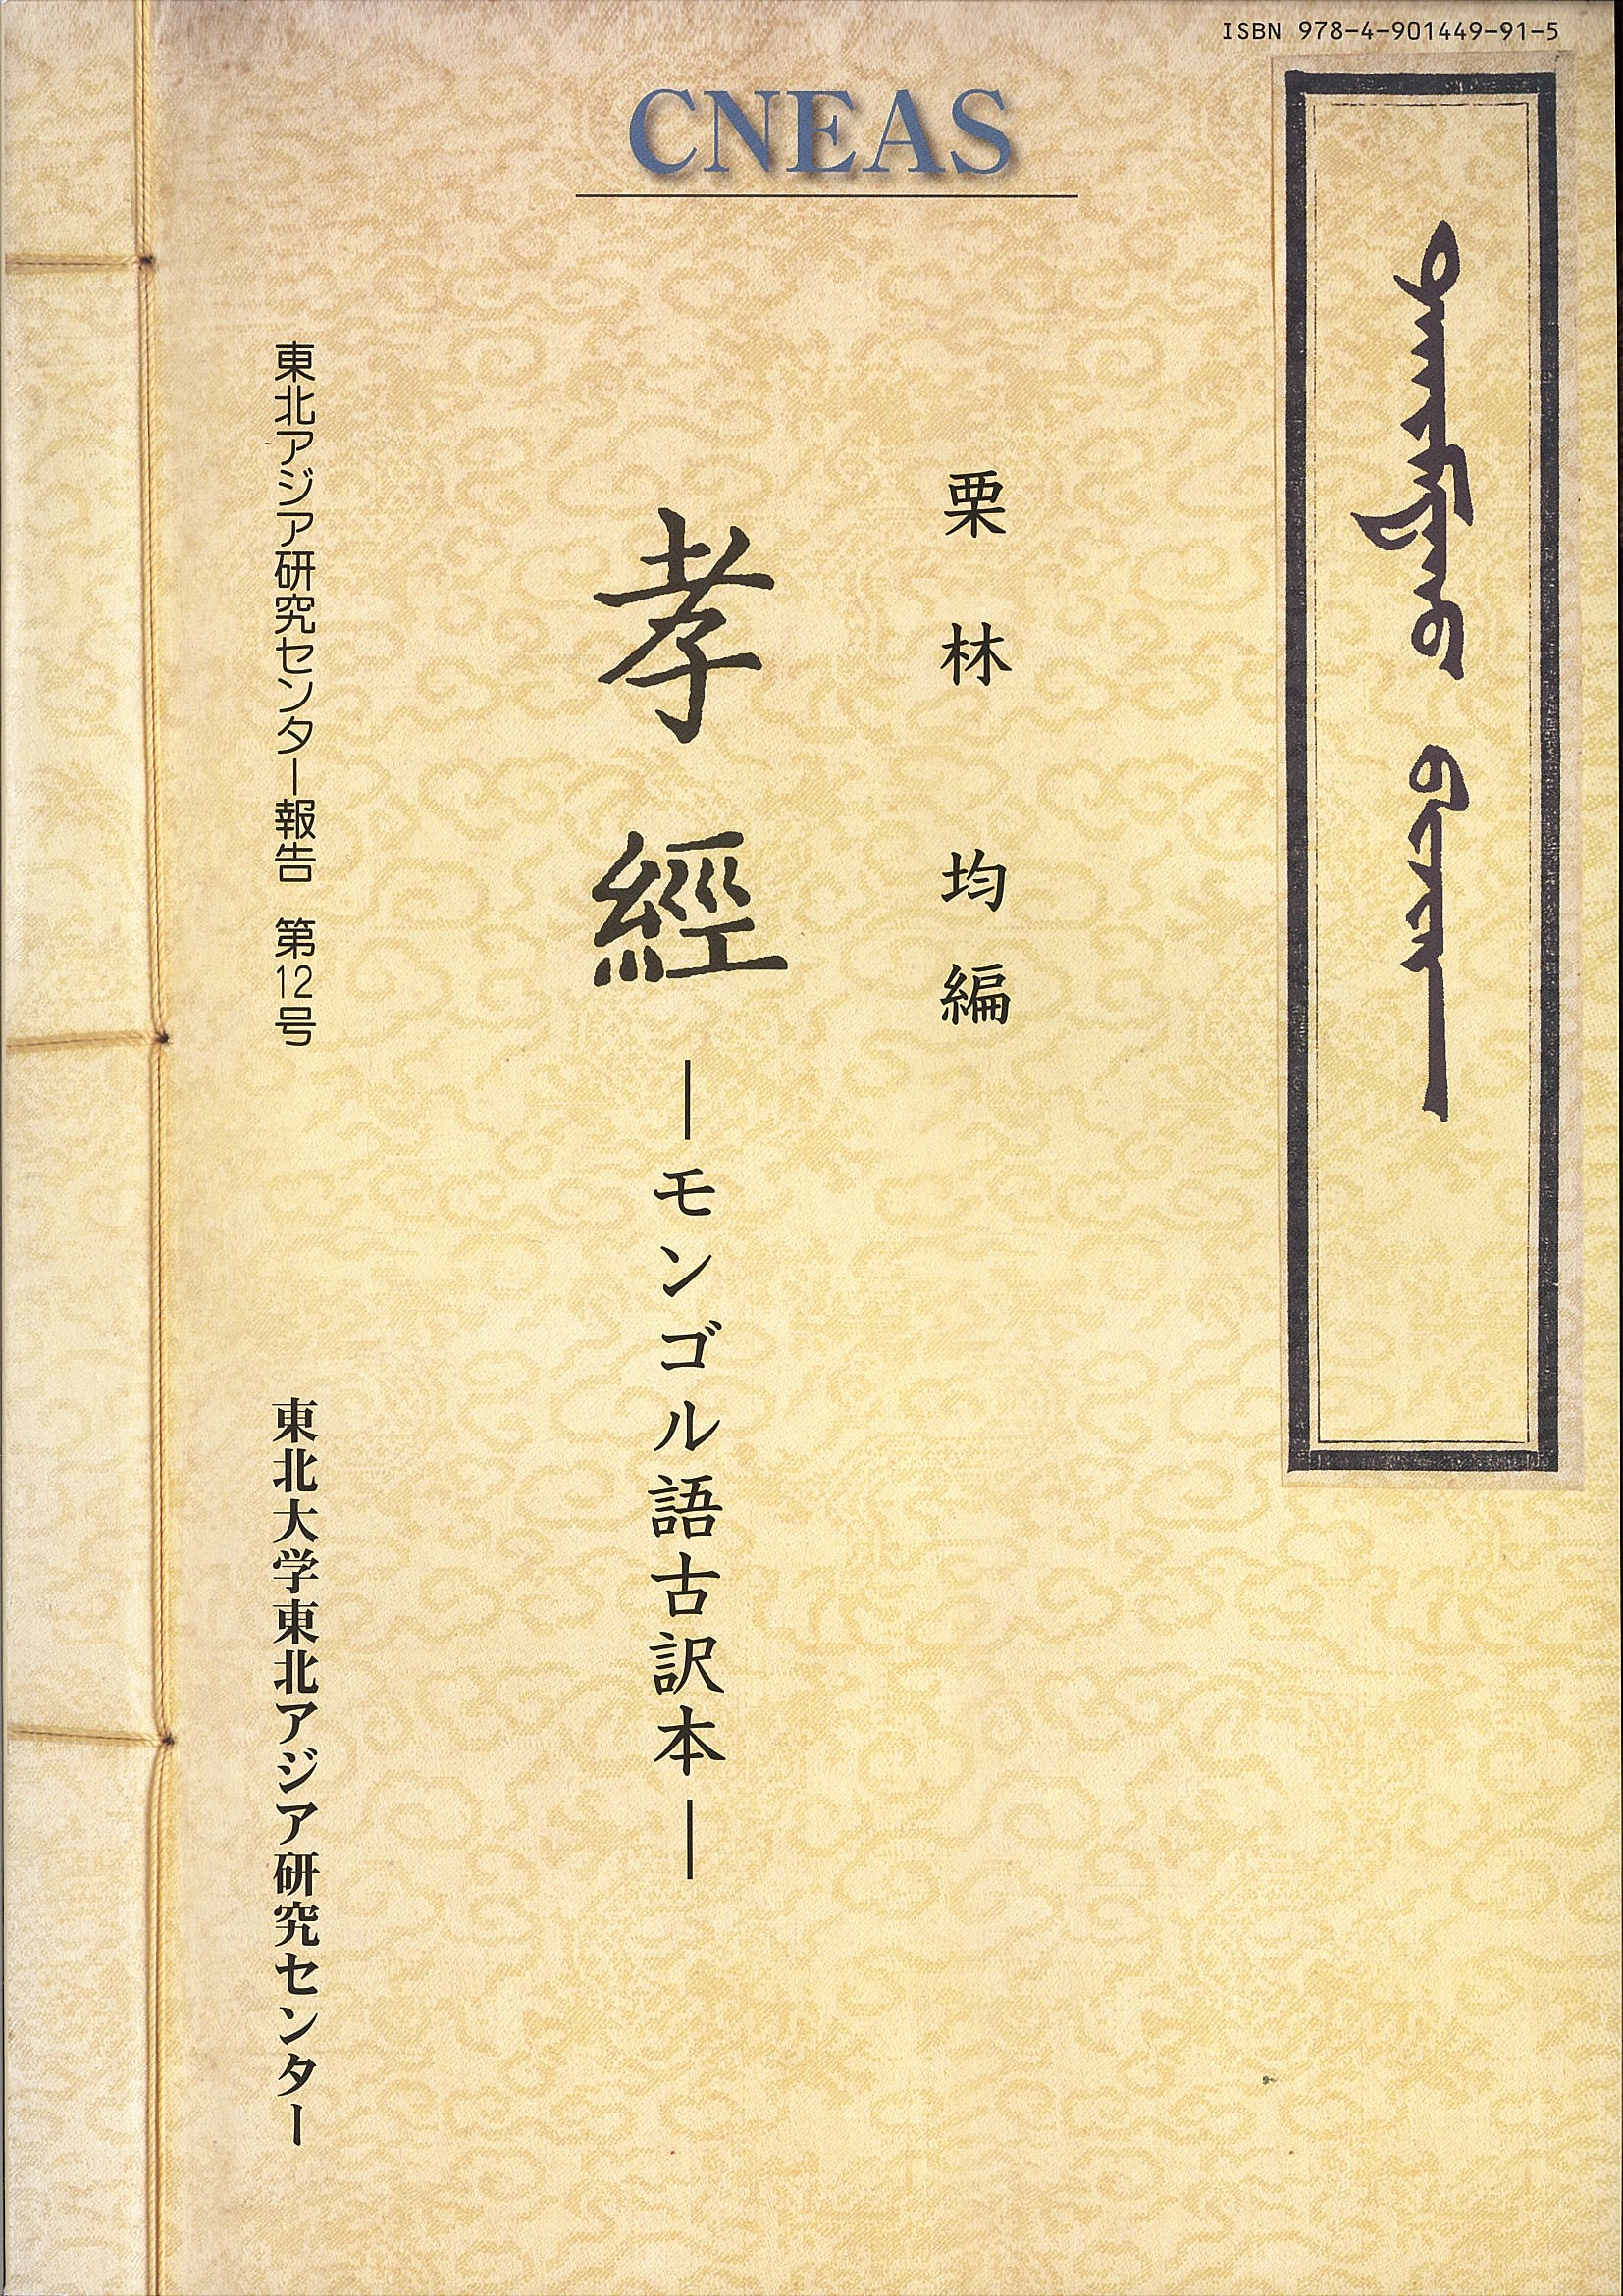 ISBN 978-4-901449-91-5
CNEAS
栗林 均 編
孝經
―モンゴル語古訳本―
東北アジア研究センター報告 第12号
東北大学東北アジア研究センター